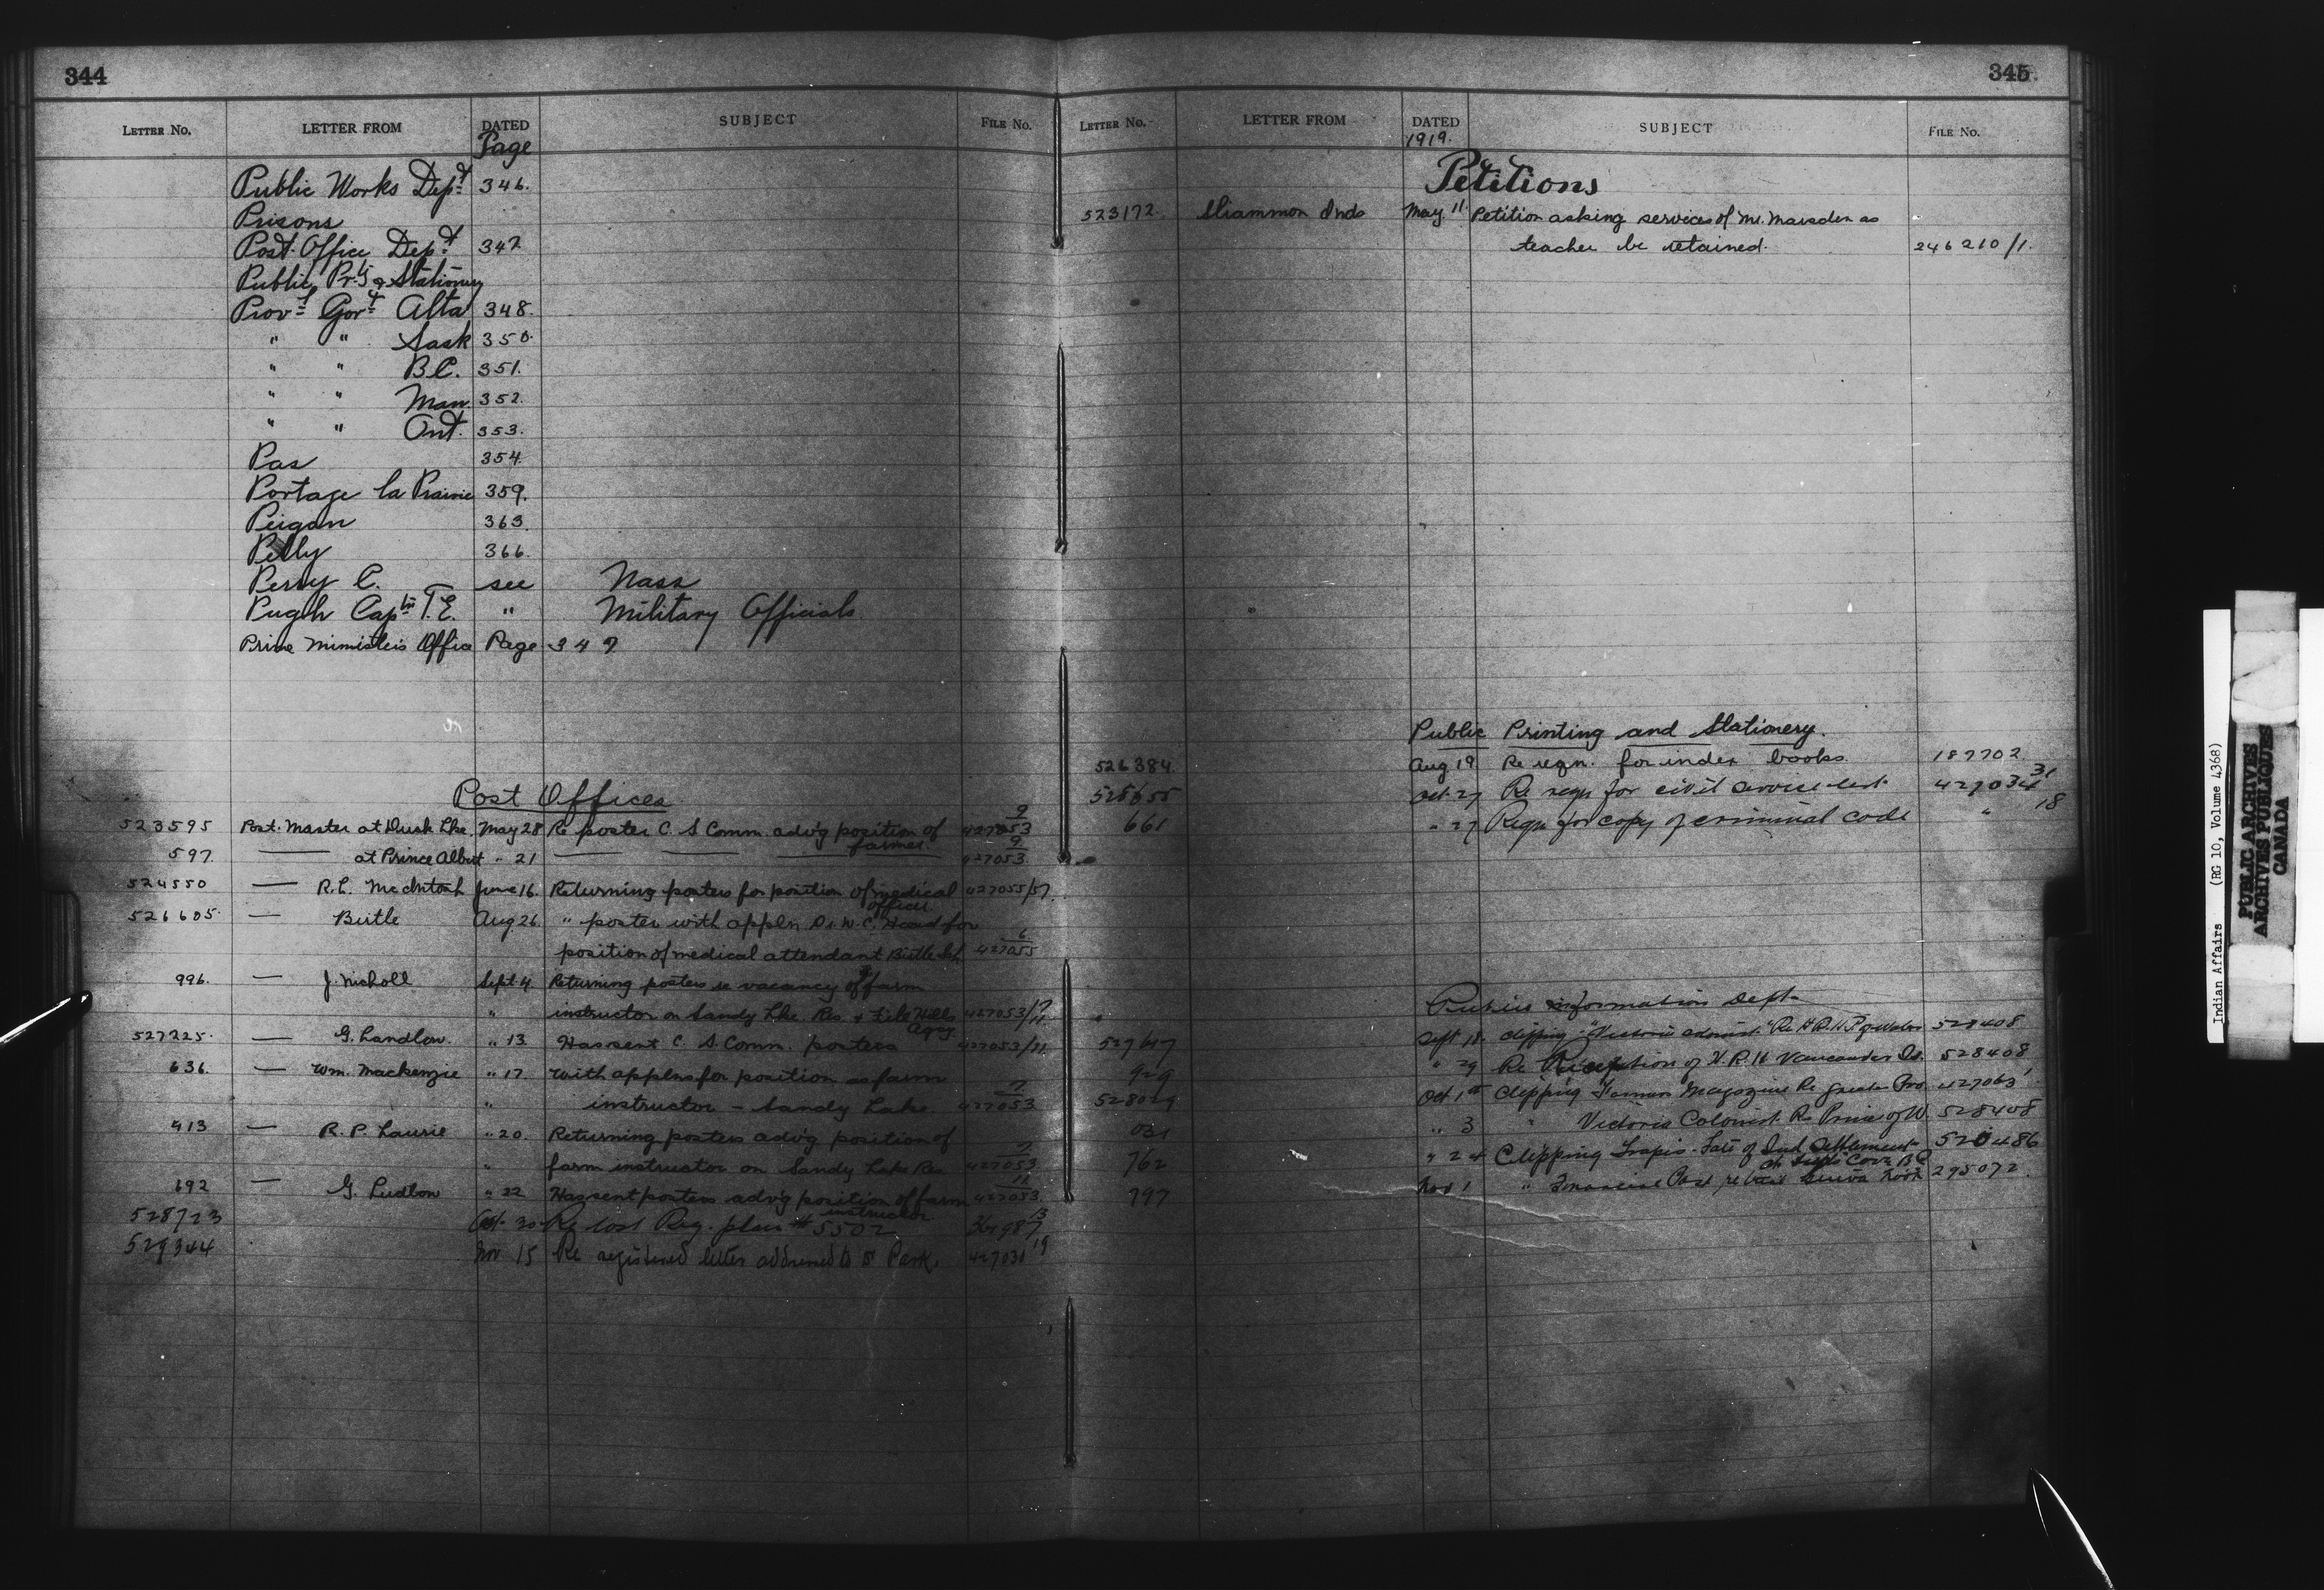 344
LETTER No. LETTER FROM DATED SUBJECT FILE No.
Page
Public Works Dept 346.
Prisons
Post Office Dept 347
Public Pr't'g & Stationery
Prov'l Gov't Alta 348.
" " Sask 350.
" " B.C. 351.
" " Man. 352.
" " Ont. 353.
Pas 354.
Portage la Prairie 359.
Peigan 363.
Pelly 366.
Perry C. see Nass
Pugh Capt'n T.E. " Military Officials
Prime Minister's Office Page 347
Post Offices
523595 Post Master at Duck Lke. May 28 Re poster C. S Comm. adv'g position of 9
farmer 427053
597. at Prince Albert " 21 9
427053.
524550 — R.L. McIntosh June 16. Returning posters for position of medical 427055/57
officer
526605. — Birtle Aug 26 " poster with appln Dr W. C. Head for
position of medical attendant Birtle Sch. 6
427055
996. — J. Nicholl Sept 4. Returning posters re vacancy of farm
" instructor on Sandy Lke Res. & File Hills 427053/7
Agcy 11
527225. — G. Landlow. " 13. Has sent C. S. Comm. posters 427053/11
636. — Wm. Mackenzie " 17. With applns for position as farm
" instructor — Sandy Lake 7
427053
413 — R. P. Laurie " 20. Returning posters adv'g position of
" farm instructor on Sandy Lake Res. 7
427053
692 — G. Ludlow " 22 Has sent posters adv'g position of farm 11
instructor 427053.
528723 Oct. 30 Re lost Reg. plan # 5502 13
529344 Nov 15 Re registered letter addressed to Park. 427031 19
345.
LETTER No. LETTER FROM DATED SUBJECT FILE No.
1919.
Petitions
523172. Sliammon Inds May 11 Petition asking services of Mr. Marsden as
teacher be retained. 246210/1.
Public Printing and Stationery.
526384. Aug 19 Re reqn. for index books. 187702
528655 Oct 27 Re reqn for civil service list 427034 31
661 " 27 Reqn for copy of criminal code " 18
Public Information Dept.
527617 Sept 18. Clipping "Victoria Colonist" Re H.R.H. P of Wales 528408
929 " 29 Re Reception of H.R.H Vancouver Is. 528408
528029 Oct 1st Clipping Farmers Magazine Re Greater Pro. 427063
031 " 3 " Victoria Colonist Re Prince of W. 528408
762 " 24 Clipping of Ind Settlement 520486
797 Nov 1 " Financial Post re 295072
Indian Affairs (RG 10, Volume 4368)
PUBLIC ARCHIVES
ARCHIVES PUBLIQUES
CANADA